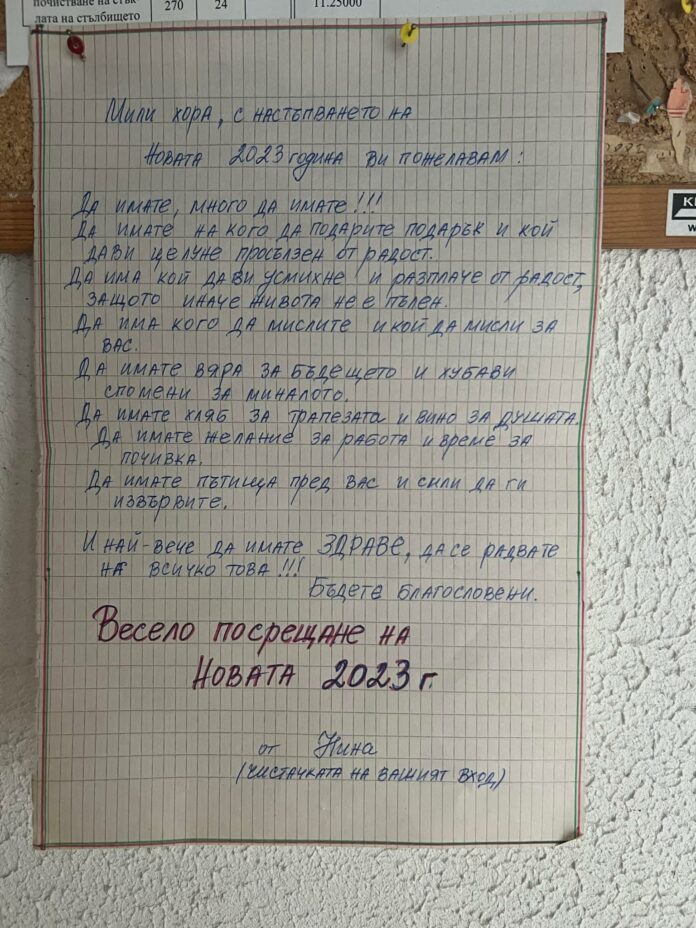 почистване на стък-
лата на стълбището
270
24
11.25000
Мили хора, с настъпването на
Новата 2023 година ви пожелавам:
Да имате, много да имате!!!
Да имате на кого да подарите подарък и кой
да ви целуне просълзен от радост.
Да има кой да ви усмихне и разплаче от радост,
защото иначе живота не е пълен.
Да има кого да мислите и кой да мисли за
вас.
Да имате вяра за бъдещето и хубави
спомени за миналото.
Да имате хляб за трапезата и вино за душата.
Да имате желание за работа и време за
почивка.
Да имате пътища пред вас и сили да ги
извървите.
И най-вече да имате ЗДРАВЕ, да се радвате
на всичко това!!!
Бъдете благословени.
Весело посрещане на
Новата 2023 г.
от Нина
(чистачката на вашият вход)